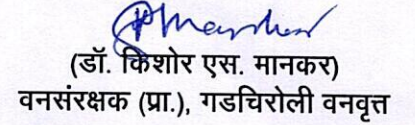 (डॉ. किशोर एस. मानकर)
वनसंरक्षक (प्रा.), गडचिरोली वनवृत्त